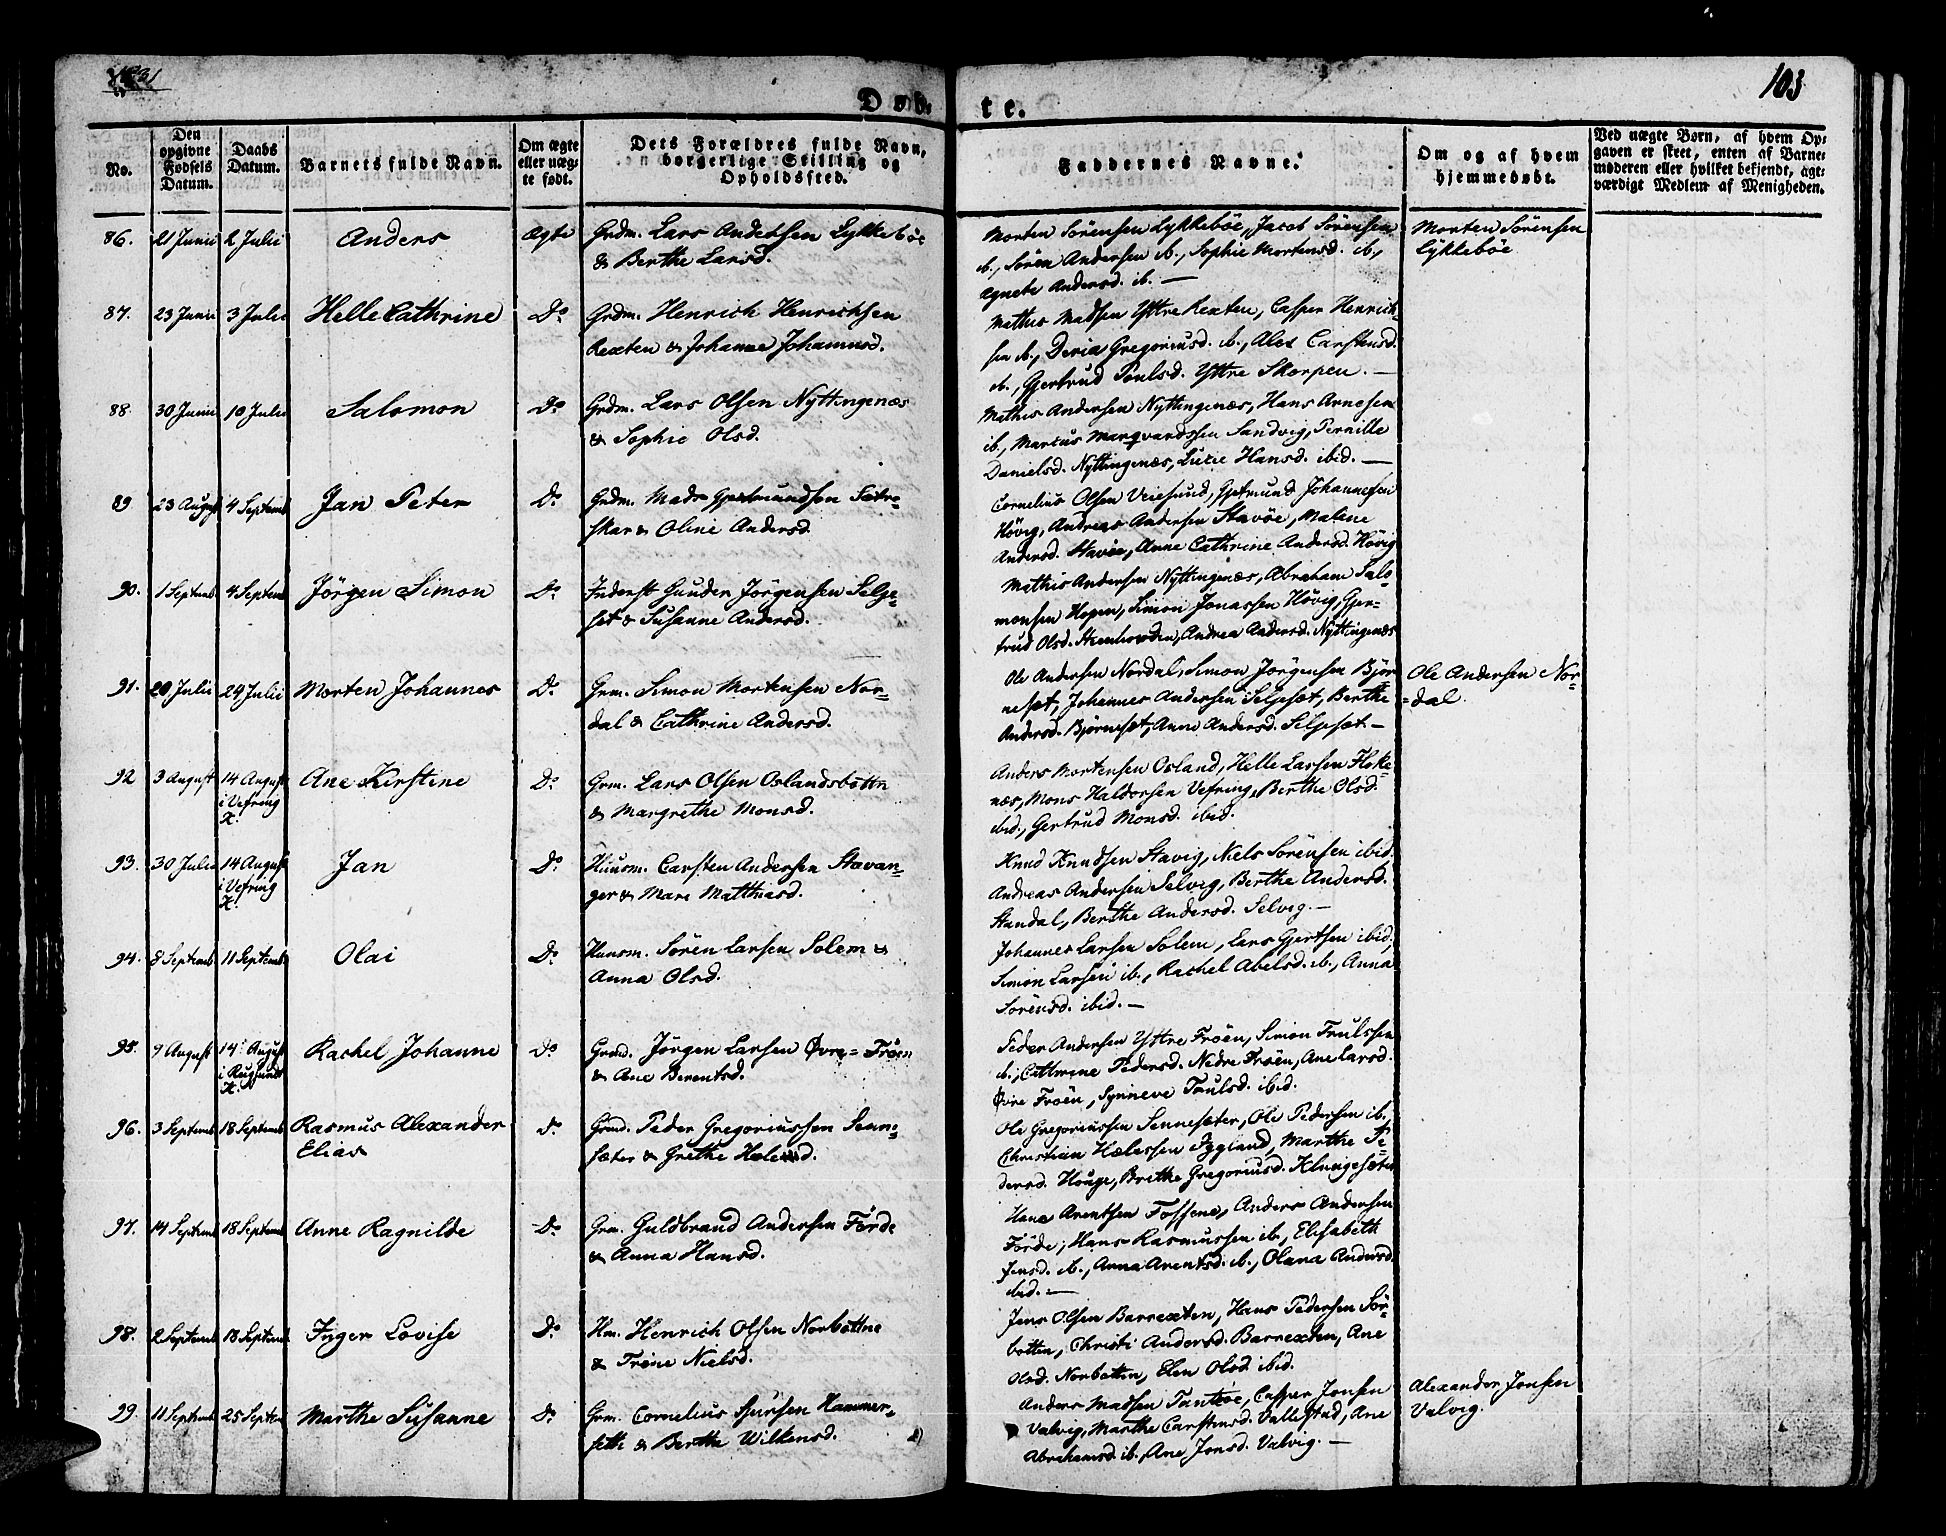 1831
103
Døb-
te.
No.
Den opgivne Fødsels Datum.
Daabs Datum.
Barnets fulde Navn.
Om ægte eller uægte født.
Dets Forældres fulde Navn, borgerlige Stilling og Opholdssted.
Faddernes Navne.
Om og af hvem hjemmedøbt.
Ved uægte Børn, af hvem Opgaven er skeet, enten af Barnemoderen eller hvilket bekjendt, agtværdigt Medlem af Menigheden.
86. 21 Junii 2 Julii Anders ægte Grdm. Lars Andersen Lykkebøe
& Berthe Larsd.
Morten Sörensen Lykkebøe, Jacob Sörensen
ib., Sören Andersen ib., Sophie Mortensd. ib.,
Agnete Andersd. ib. —
Morten Sörensen
Lykkebøe
87. 23 Junii 3 Julii Helle Cathrine Do Grdm. Henrich Henrichsen
Rexten & Johanne Johannesd.
Mathis Madsen Yttre Rexten, Casper Henrich-
sen ib., Deria Gregoriusd. ib., Ales Carstensd.
ib., Gjertrud Poulsd. Yttre Skorpen. —
88. 30 Junii 10 Julii Salomon Do Grdm. Lars Olsen Nyttingenæs
& Sophie Olsd.
Mathis Andersen Nyttingenæs, Hans Arnesen
ib., Marcus Marqvardssen Sandvig, Pernille
Danielsd. Nyttingenæs, Lucie Hansd. ibid. —
89 23 August 4 Septemb Jan Peter Do Grdm. Mads Gjertmundsen Sætre-
skar & Oline Andersd.
Cornelius Olsen Veiesund, Gjetmund Johannesen
Hövig, Andreas Andersen Stavöe, Malene
Andersd. Stavöe, Anne Cathrine Andersd. Hövig
90. 1 Septemb 4 Septemb Jörgen Simon Do Inderst Gunder Jörgensen Selje-
set & Susanne Andersd.
Mathis Andersen Nyttingenæs, Abraham Salo-
monsen Hegen, Simon Jonassen Hövig, Gjer-
trud Olsd. Steenhovden, Andrea Andersd. Nyttingenæs
91. 20 Julii 24 Julii Morten Johannes Do Grm. Simon Mortensen Nor-
dal & Cathrine Andersd.
Ole Andersen Nordal, Simon Jörgensen Björ-
neset, Johannes Andersen Seljeset, Berthe
Andersd. Björneset, Anne Andersd. Seljeset —
Ole Andersen Nor-
dal.
92 3 August 14 August i Vefring K. Ane Kirstine Do Grm. Lars Olsen Oslandsbotten
& Margrethe Monsd.
Anders Mortensen Osland, Helle Larsen Floke-
næs, Mons Haldorsen Vefring, Berthe Olsd.
ibid., Gertrud Monsd. ibid.
93. 30 Julii 14 August i Vefring K. Jan Do Huusm. Carsten Andersen Stavan-
ger & Mari Matthiasd.
Knud Knudsen Stavig, Niels Sörensen ibid.
Andreas Andersen Selvig, Berthe Andersd.
Standal, Berthe Andersd. Selvig. —
94. 8 Septemb 11 Septemb Olai Do Huusm. Sören Larsen Solem &
Anna Olsd.
Johannes Larsen Solem, Lars Gjertsen ibid,
Simon Larsen ib., Rachel Abelsd. ib., Anna
Sörensd. ibid. —
95. 9 August 14 August i Rugsund K. Rachel Johanne Do Grmd. Jörgen Larsen Övre Fröen
& Ane Berentsd.
Peder Andersen Yttre Fröen, Simon Poulssen
ib., Cathrine Pedersd. Nedre Fröen, Ane Larsd.
Övre Fröen, Synneve Poulsd. ibid.
96. 3 Septemb 18 Septemb Rasmus Alexander
Elias
Do Grmd. Peder Gregoriussen Senne-
sæter & Grethe d.
Ole Gregoriussen Sennesæter, Ole Pedersen ib.,
Christian Helessen Rygland, Marthe Pe-
dersd. Houge, Brithe Gregoriusd. Kluigesæter
97. 14 Septemb 18 Septemb Anne Ragnilde Do Grm. Guldbrand Andersen Förde
& Anna Hansd.
Hans Arentsen Fossene, Anders Andersen
Förde, Hans Rasmussen ib., Elisabeth
Jensd. ib., Anna Arentsd. ib., Olana Andersd.
ibid. —
98. 2 Septemb 18 Septemb Inger Lovise Do Hm. Henrich Olsen Norbottne
& Trine Nielsd.
Jens Olsen Barrexten, Hans Pedersen Sör-
botten, Christi Andersd. Barrexten, Ane
Olsd. Norbotten, Elen Olsd. ibid.
99. 11 Septemb 25 Septem Marthe Susanne Do Grm. Cornelius Sjursen Hammer-
seth & Berthe Wilkensd.
Anders Madsen Tantöe, Casper Jonsen
Valvig, Marthe Carstensd. Vallestad, Ane
Abrahamsd. ib., Ane Jonsd. Valvig. —
Alexander Jonsen
Valvig.